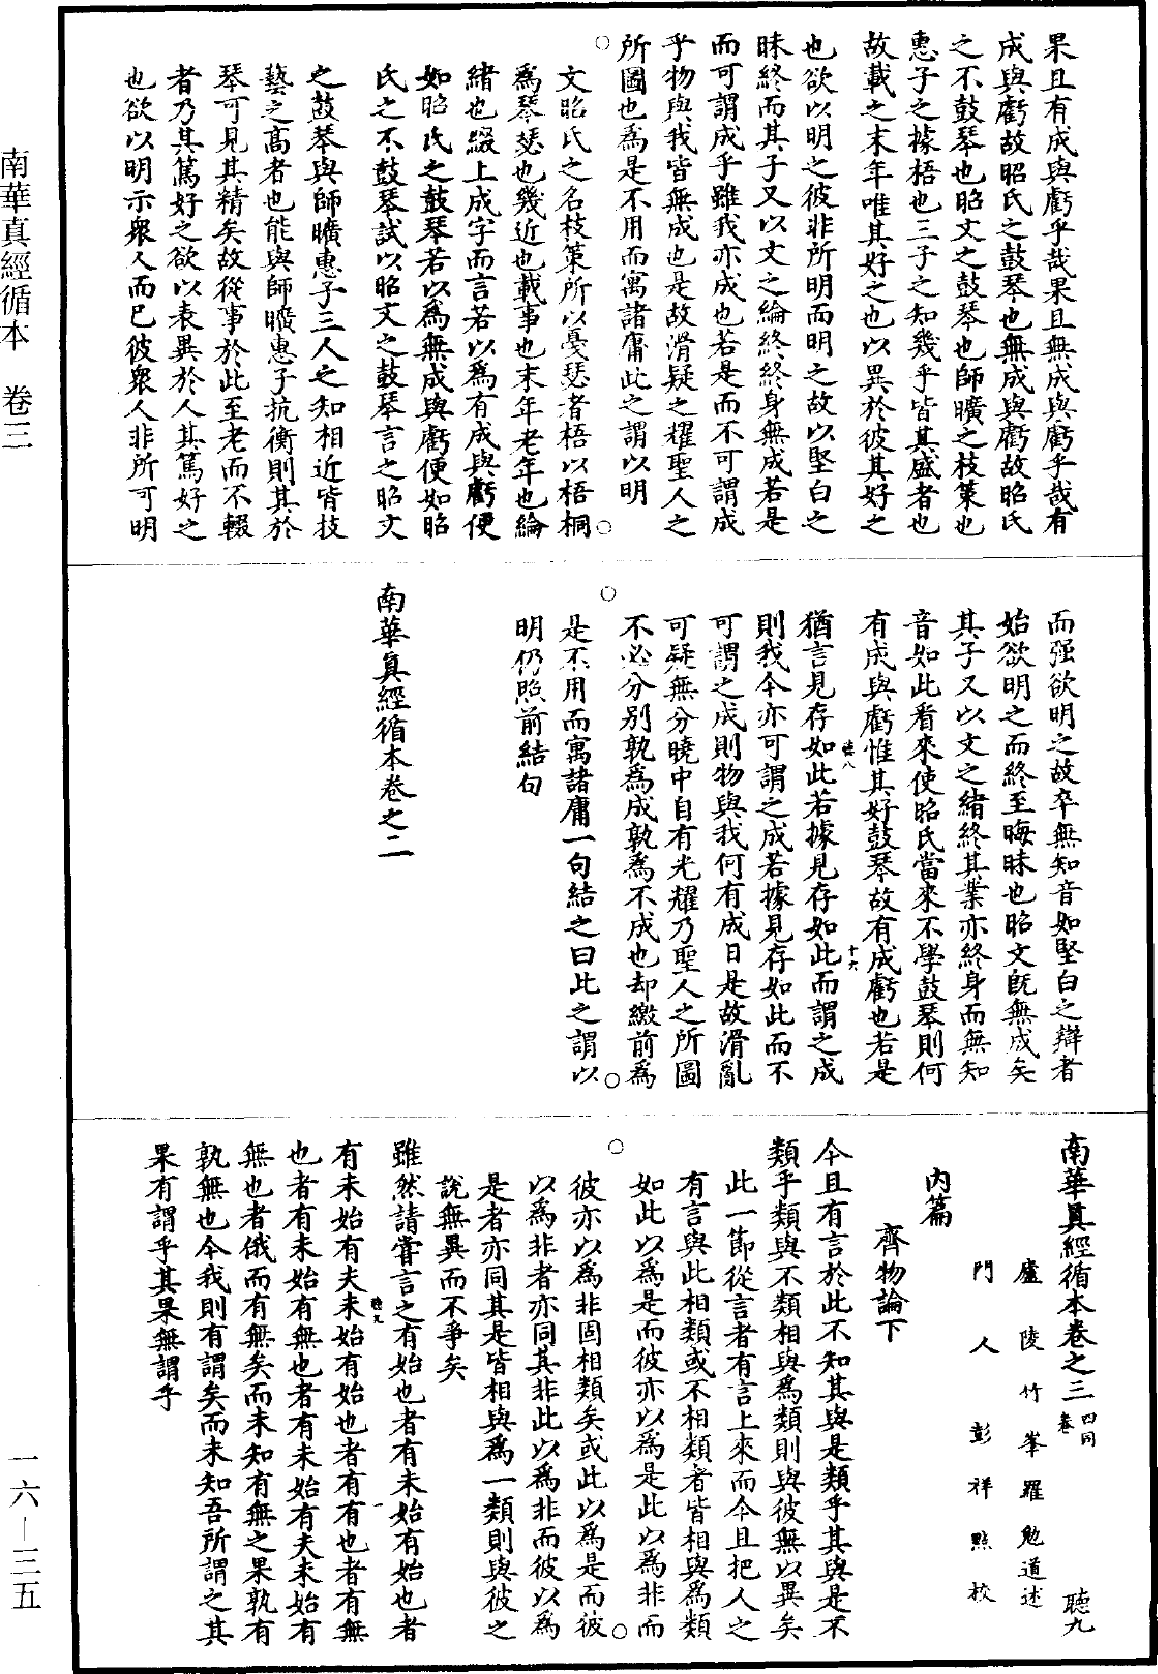 果且有成與虧乎哉果且無成與虧乎哉有
成與虧故昭氏之鼓琴也無成與虧故昭氏
之不鼓琴也昭文之鼓琴也師曠之枝策也
惠子之據梧也三子之知幾乎皆其盛者也
故載之末年唯其好之也以異於彼其好之
也欲以明之彼非所明而明之故以堅白之
昧終而其子又以文之綸終終身無成若是
而可謂成乎雖我亦成也若是而不可謂成
乎物與我皆無成也是故滑疑之耀聖人之
所圖也爲是不用而寓諸庸此之謂以明
文昭氏之名枝策所以憂瑟者梧以梧桐
爲琴瑟也幾近也載事也末年老年也綸
緒也綴上成字而言若以爲有成與虧便
如昭氏之鼓琴若以爲無成與虧便如昭
氏之不鼓琴試以昭文之鼓琴言之昭文
之鼓琴與師曠惠子三人之知相近皆技
藝之高者也能與師曠惠子抗衡則其於
琴可見其精矣故從事於此至老而不輟
者乃其篤好之欲以表異於人其篤好之
也欲以明示衆人而已彼衆人非所可明
而强欲明之故卒無知音如堅白之辯者
始欲明之而終至晦昧也昭文旣無成矣
其子又以文之緒終其業亦終身而無知
音如此看來使昭氏當來不學鼓琴則何
有成與虧惟其好鼓琴故有成虧也若是
聽八
十六
猶言見存如此若據見存如此而謂之成
則我今亦可謂之成若據見存如此而不
可謂之成則物與我何有成日是故滑亂
可疑無分曉中自有光耀乃聖人之所圖
不必分别孰爲成孰爲不成也却繳前爲
是不用而寓諸庸一句結之曰此之謂以
明仍照前結句
南華真經循本卷之二
南華真經循本卷之三 四同卷 聽九
廬陵竹峯羅勉道述
門人彭祥點校
内篇
齊物論下
今且有言於此不知其與是類乎其與是不
類乎類與不類相與爲類則與彼無以異矣
此一節從言者有言上來而今且把人之
有言與此相類或不相類者皆相與爲類
如此以爲是而彼亦以爲是此以爲非而
彼亦以爲非固相類矣或此以爲是而彼
以爲非者亦同其非此以爲非而彼以爲
是者亦同其是皆相與爲一類則與彼之
說無異而不爭矣
雖然請嘗言之有始也者有未始有始也者
聽九
一
有未始有夫未始有始也者有有也者有無
也者有未始有無也者有未始有夫未始有
無也者俄而有無矣而未知有無之果孰有
孰無也今我則有謂矣而未知吾所謂之其
果有謂乎其果無謂乎
南華真經循本 卷三
一六—三五